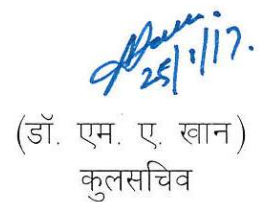 25/1/17.
(डॉ. एम. ए. खान)
कुलसचिव